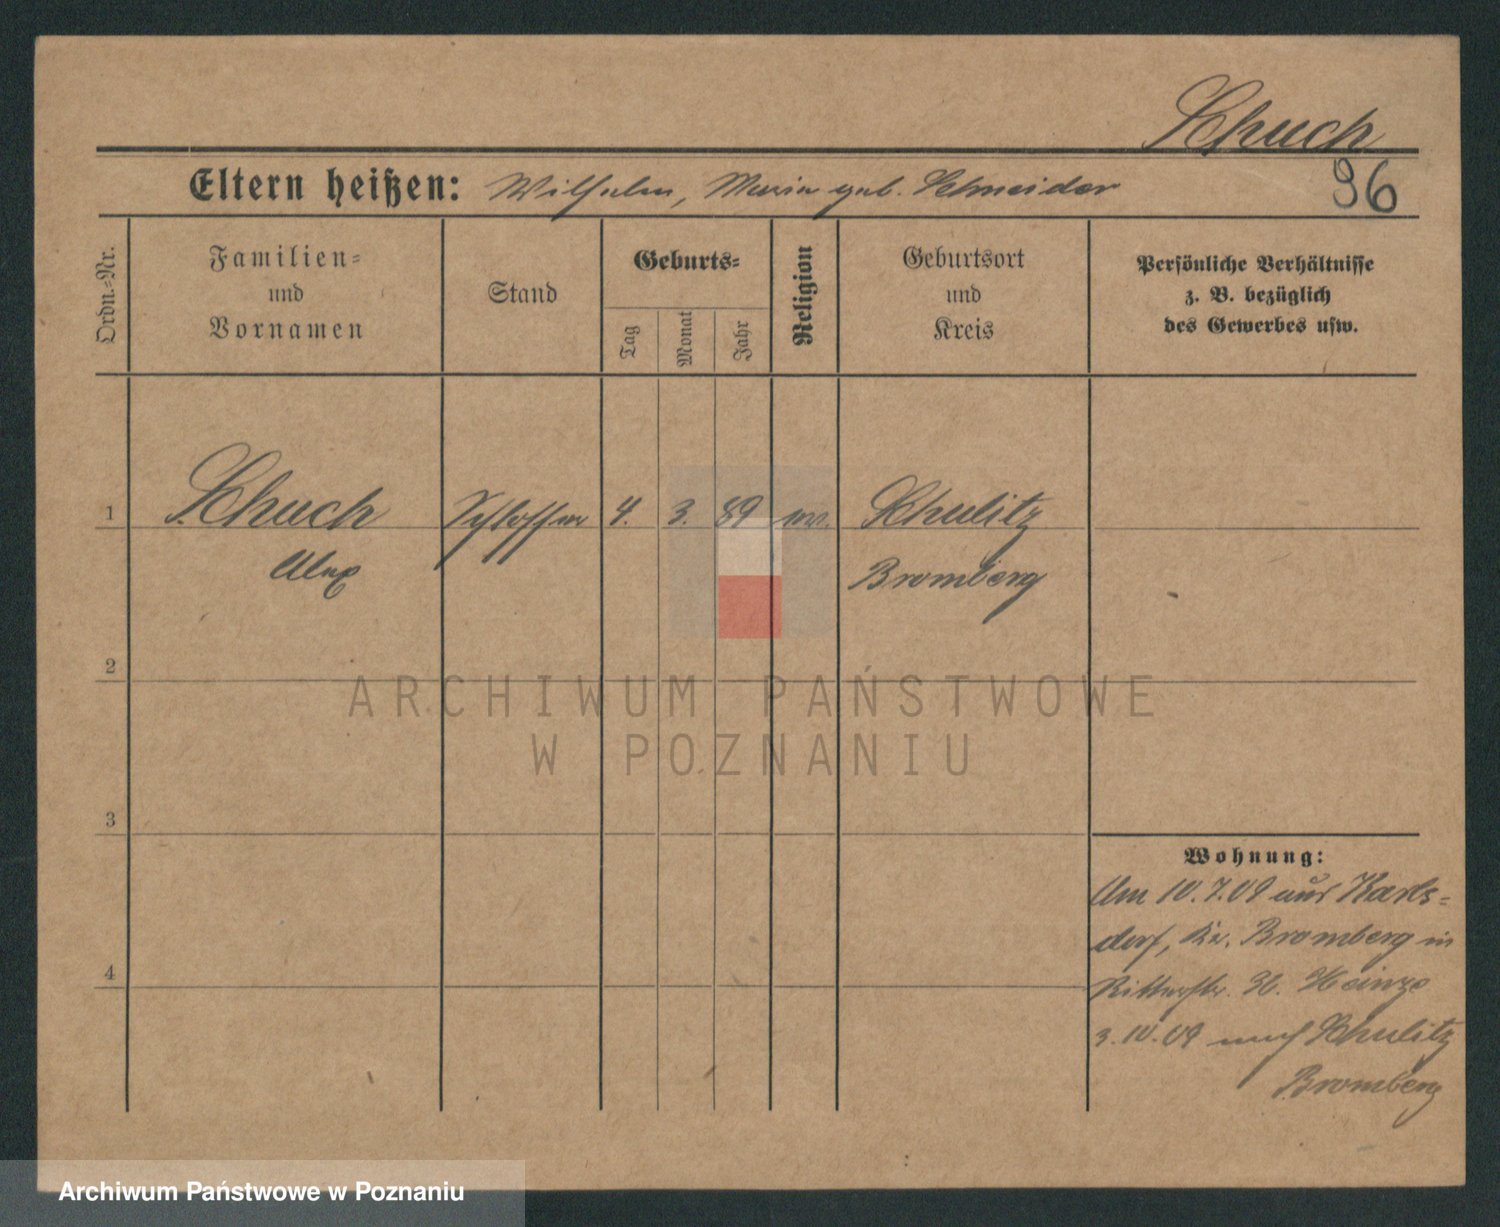 Schuch
Eltern heißen: Wilhelm, Maria geb. Schneider
96
Ordn.-Nr.
Familien-
und
Vornamen
Stand
Geburts-
Tag
Monat
Jahr
Religion
Geburtsort
und
Kreis
Persönliche Verhältnisse
z. B. bezüglich
des Gewerbes usw.
1 Schuch Schlosser 4. 3. 89 ev. Schulitz
Alex Bromberg
2
ARCHIWUM PAŃSTWOWE
W POZNANIU
3
Wohnung:
Am 10.7.09 aus Karls-
dorf, Kr. Bromberg in
4
Ritterstr. 36. Heinze
3.10.09 nach Schulitz
Bromberg
Archiwum Państwowe w Poznaniu